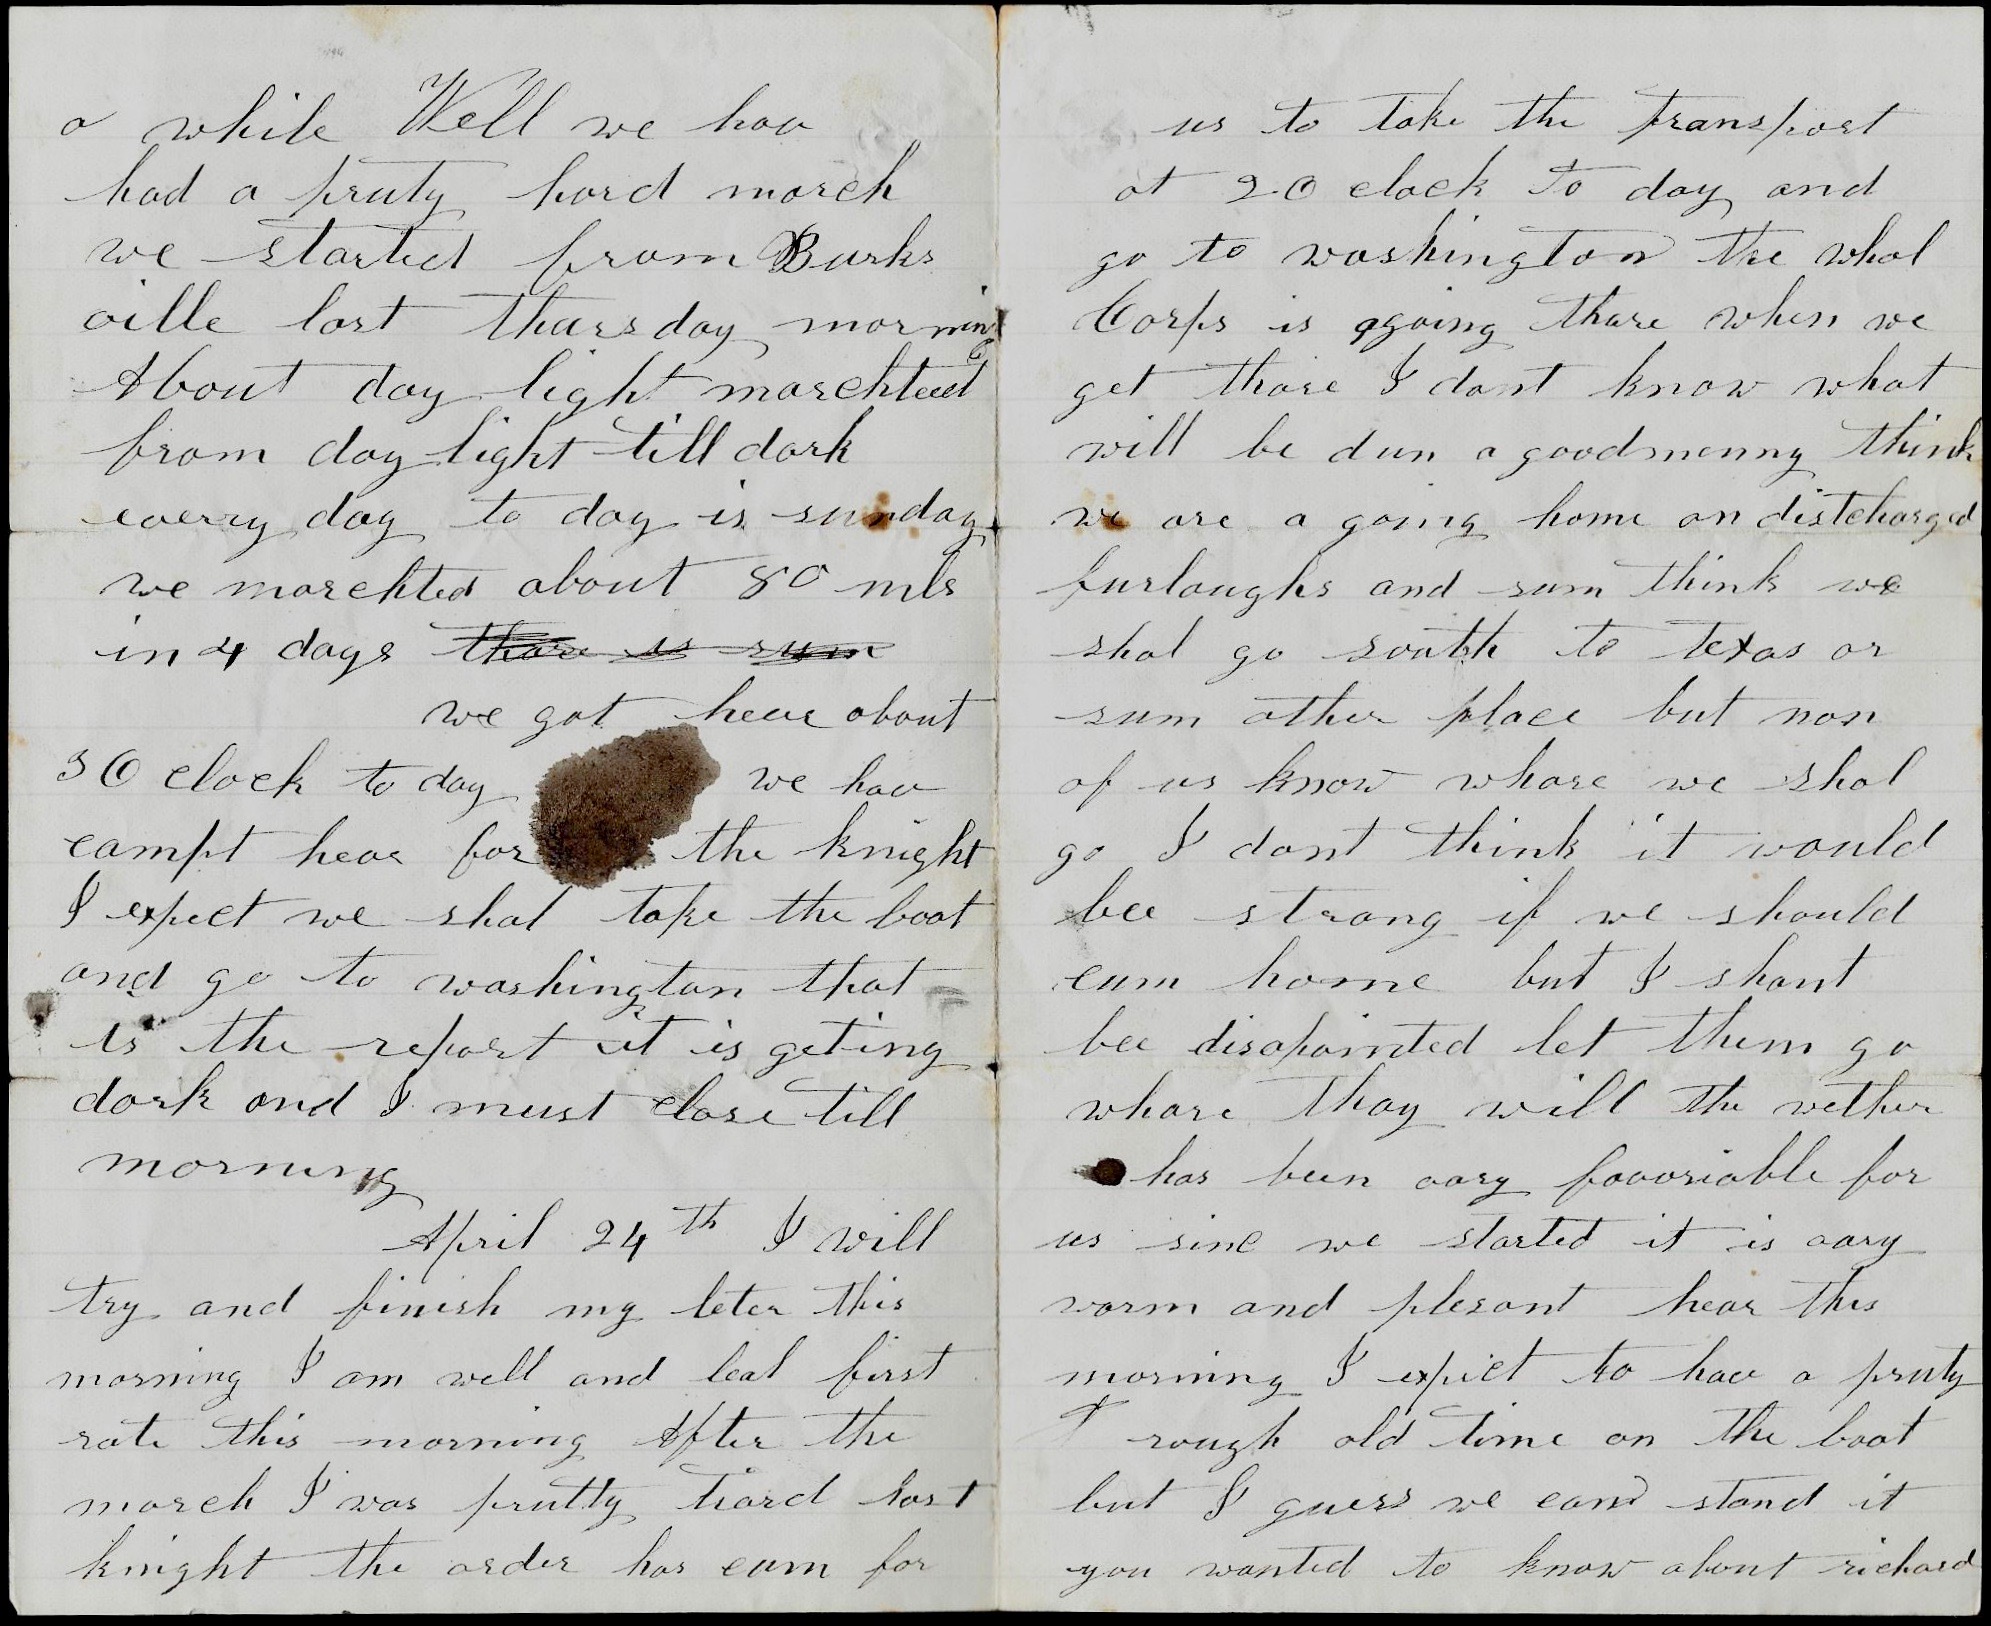 a while Well we hav
had a pruty hard march
we started from Burks
ville last thursday morning
About day light marchted
from day light till dark
every day to day is sunday
we marchted about 80 mls
in 4 days thare is sum
we got hear about
3 O clock to day we hav
campt hear for the knight
I expect we shal take the boat
and go to washington that
is the report it is geting
dark and I must close till
morning
April 24th I will
try and finish my leter this
morning I am well and leal first
rate this morning After the
march I was prutty tiard last
knight the order has cum for
us to take the transport
at 2 O clock to day and
go to washington the whol
Corps is agoing thare when we
get thare I dont know what
will be dun a good menny think
we are a going home on distcharged
furloughs and sum think we
shal go south to texas or
sum other place but non
of us know whare we shal
go I dont think it would
bee strang if we should
cum home but I shant
bee disapointed let them go
whare thay will the wether
has been vary favoriable for
us sinc we started it is vary
warm and plesant hear this
morning I expect to hav a pruty
rough old time on the boat
but I guess we can stand it
you wanted to know about richard